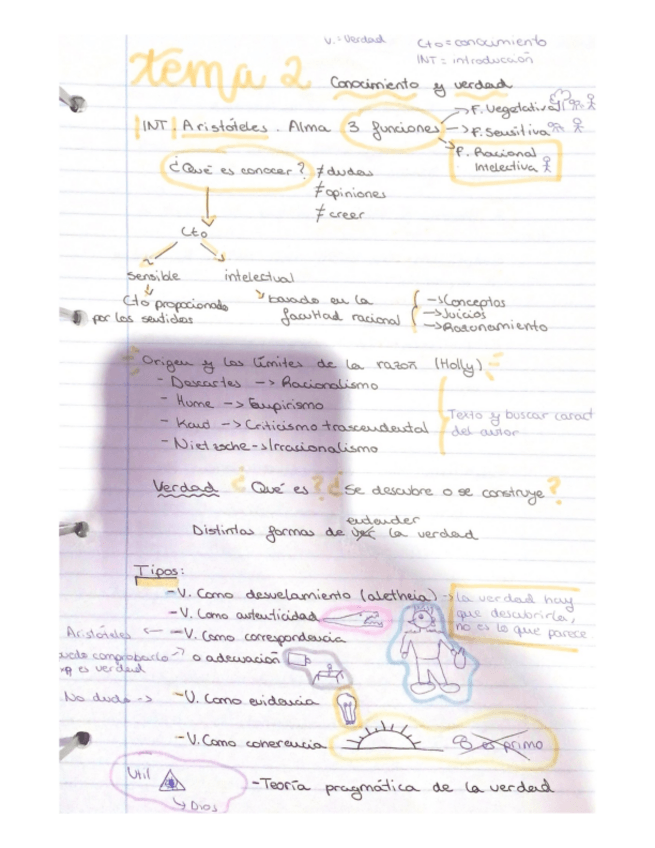 V. = Verdad
Cto = conocimiento
INT = introducción
tema 2 Conocimiento y verdad
INT. Aristóteles. Alma 3 funciones
→ F. Vegetativa
→ F. Sensitiva
→ F. Racional
Intelectiva
¿Qué es conocer? ≠ dudas
≠ opiniones
≠ creer
Cto
sensible intelectual
Cto proporcionado por los sentidos
basado en la facultad racional
→ Conceptos
→ Juicios
→ Razonamiento
Origen y los límites de la razón (Holly)
- Descartes → Racionalismo
- Hume → Empirismo
- Kant → Criticismo trascendental
- Nietzsche → Irracionalismo
Texto y buscar caract
del autor
Verdad ¿Qué es? ¿Se descubre o se construye?
Distintas formas de ver entender la verdad
Tipos:
- V. Como desvelamiento (aletheia) → la verdad hay
que descubrirla,
no es lo que parece
- V. Como autenticidad
Aristóteles ← - V. Como correspondencia
o adecuación
comprobarlo
es verdad
No duda → - V. Como evidencia
- V. Como coherencia 8 es primo
Util
↳ Dios
- Teoría pragmática de la verdad